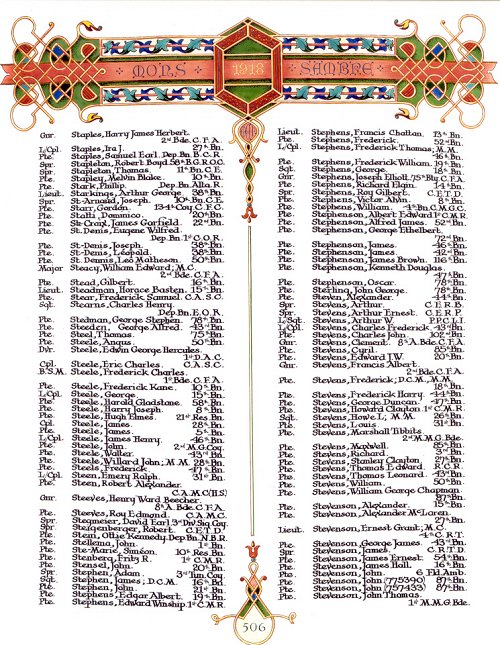 MONS 1918 SAMBRE
Gnr. Staples, Harry James Herbert.
2nd Bde. C.F.A.
L/Cpl. Staples, Ira J. 27th Bn.
Pte. Staples, Samuel Earl. Dep. Bn. B.C.R.
Spr. Stapleton, Robert Boyd. 58th B.G.R.O.C.
Spr. Stapleton, Thomas. 11th Bn. C.E.
Pte. Stapley, Melvin Blake. 10th Bn.
Pte. Stark, Phillip. Dep. Bn. Alta. R.
Lieut. Starkings, Arthur George. 38th Bn.
Spr. St-Arnaud, Joseph. 10th Bn. C.E.
Pte. Starr, Gordon. 13th Coy. C.F.C.
Pte. Statti, Dominico. 20th Bn.
Pte. St-Croix, James Gorfield. 22nd Bn.
Pte. St-Denis, Eugene Wilfred.
Dep. Bn. 1st C.O.R.
Pte. St-Denis, Joseph. 38th Bn.
Pte. St-Denis, Léopold. 38th Bn.
Pte. St-Dennis, Leo Matheson. 50th Bn.
Major Steacy, William Edward; M.C.
2nd Bde. C.F.A.
Pte. Stead, Gilbert. 16th Bn.
Lieut. Steadman, Horace Basten. 15th Bn.
Pte. Stear, Frederick Samuel. C.A.S.C.
Sgt. Stearns, Charles Henry.
Dep. Bn. E.O.R.
Pte. Stedman, George Stephen. 78th Bn.
Pte. Steeden, George Alfred. 43rd Bn.
Pte. Steel, Thomas. 75th Bn.
Pte. Steele, Angus. 50th Bn.
Dvr. Steele, Edwin George Hercules.
1st D.A.C.
Cpl. Steele, Eric Charles. C.A.S.C.
B.S.M. Steele, Frederick Charles.
1st Bde. C.F.A.
Pte. Steele, Frederick Kane. 10th Bn.
L/Cpl. Steele, George. 15th Bn.
Pte. Steele, Harold Gladstone. 58th Bn.
Pte. Steele, Harry Joseph. 8th Bn.
Pte. Steele, Hugh Elmes. 21st Res. Bn.
Cpl. Steele, James. 28th Bn.
Pte. Steele, James. 5th Bn.
L/Cpl. Steele, James Henry. 46th Bn.
Pte. Steele, John. 2nd M.G. Coy.
Pte. Steele, Walter. 43rd Bn.
Pte. Steele, Willard John; M.M. 28th Bn.
Pte. Steels, Frederick. 47th Bn.
L/Cpl. Steen, Emery Ralph. 31st Bn.
Pte. Steen, Robert Alexander.
C.A.M.C. (H.S.)
Gnr. Steeves, Henry Ward Beecher.
8th A. Bde. C.F.A.
Pte. Steeves, Roy Edmond. C.A.M.C.
Spr. Stegmeier, David Earl. 3rd Div. Sig. Coy.
Spr. Steigenberger, Robert. C.E.T.D.
Pte. Stein, Othie Kennedy. Dep. Bn. N.B.R.
Pte. Stellern, John. 1st Bn.
Pte. Ste-Marie, Siméon. 10th Res. Bn.
Pte. Stenberg, Fritz R. 1st C.M.R.
Pte. Stensel, John. 20th Bn.
Spr. Stephen, Adam. 3rd Tun. Coy.
Sgt. Stephen, James; D.C.M. 16th Bn.
Pte. Stephen, John. 21st Bn.
Pte. Stephens, Edgar Albert. 19th Bn.
Pte. Stephens, Edward Winship. 1st C.M.R.
Lieut. Stephens, Francis Chattan. 13th Bn.
Pte. Stephens, Frederick. 52nd Bn.
L/Cpl. Stephens, Frederick Thomas; M.M.
46th Bn.
Pte. Stephens, Frederick William. 19th Bn.
Sgt. Stephens, George. 18th Bn.
Gnr. Stephens, Joseph Elliott. 75th Bty. C.F.A.
Pte. Stephens, Richard Elgin. 14th Bn.
Spr. Stephens, Roy Gilbert. C.E.T.D.
Pte. Stephens, Victor Alvin. 8th Bn.
Pte. Stephens, William. 4th Bn. C.M.G.C.
Pte. Stephenson, Albert Edward. 1st C.M.R.
Pte. Stephenson, Alfred James. 52nd Bn.
Pte. Stephenson, George Ethelbert.
72nd Bn.
Pte. Stephenson, James. 46th Bn.
Pte. Stephenson, James. 42nd Bn.
Pte. Stephenson, James Brown. 116th Bn.
Pte. Stephenson, Kenneth Douglas.
47th Bn.
Pte. Stephenson, Oscar. 78th Bn.
Pte. Sterling, John George. 78th Bn.
Pte. Steven, Alexander. 44th Bn.
Spr. Stevens, Arthur. C.E.R.B.
Spr. Stevens, Arthur Ernest. C.E.R.P.
L/Sgt. Stevens, Arthur W. P.P.C.L.I.
L/Cpl. Stevens, Charles Frederick. 43rd Bn.
Pte. Stevens, Charles John. 102nd Bn.
Gnr. Stevens, Clement. 8th A. Bde. C.F.A.
Pte. Stevens, Cyril. 85th Bn.
Pte. Stevens, Edward J.W. 20th Bn.
Gnr. Stevens, Francis Albert.
2nd Bde. C.F.A.
Pte. Stevens, Frederick; D.C.M., M.M.
18th Bn.
Pte. Stevens, Frederick Harry. 44th Bn.
Pte. Stevens, George Duncan. 47th Bn.
Pte. Stevens, Howard Clayton. 1st C.M.R.
Sgt. Stevens, Howe L; M.M. 26th Bn.
Pte. Stevens, Louis. 31st Bn.
Pte. Stevens, Marshall Tibbits.
2nd M.M.G. Bde.
Pte. Stevens, Maxwell. 85th Bn.
Pte. Stevens, Richard. 3rd Bn.
Pte. Stevens, Stanley Clayton. 27th Bn.
Pte. Stevens, Thomas Edward. R.C.R.
Pte. Stevens, Thomas Leonard. 43rd Bn.
Pte. Stevens, William. 50th Bn.
Pte. Stevens, William George Chapman.
87th Bn.
Pte. Stevenson, Alexander. 15th Bn.
Pte. Stevenson, Alexander McLaren.
27th Bn.
Lieut. Stevenson, Ernest Grant; M.C.
4th C.R.T.
Pte. Stevenson, George James. 43rd Bn.
Spr. Stevenson, James. C.R.T.D.
Pte. Stevenson, James Ernest. 54th Bn.
Pte. Stevenson, James Hall. 16th Bn.
Pte. Stevenson, John. 6 Fld. Amb.
Pte. Stevenson, John (775390) 87th Bn.
Pte. Stevenson, John (757433) 87th Bn.
Pte. Stevenson, John Thomas.
1st M.M.G. Bde.
506